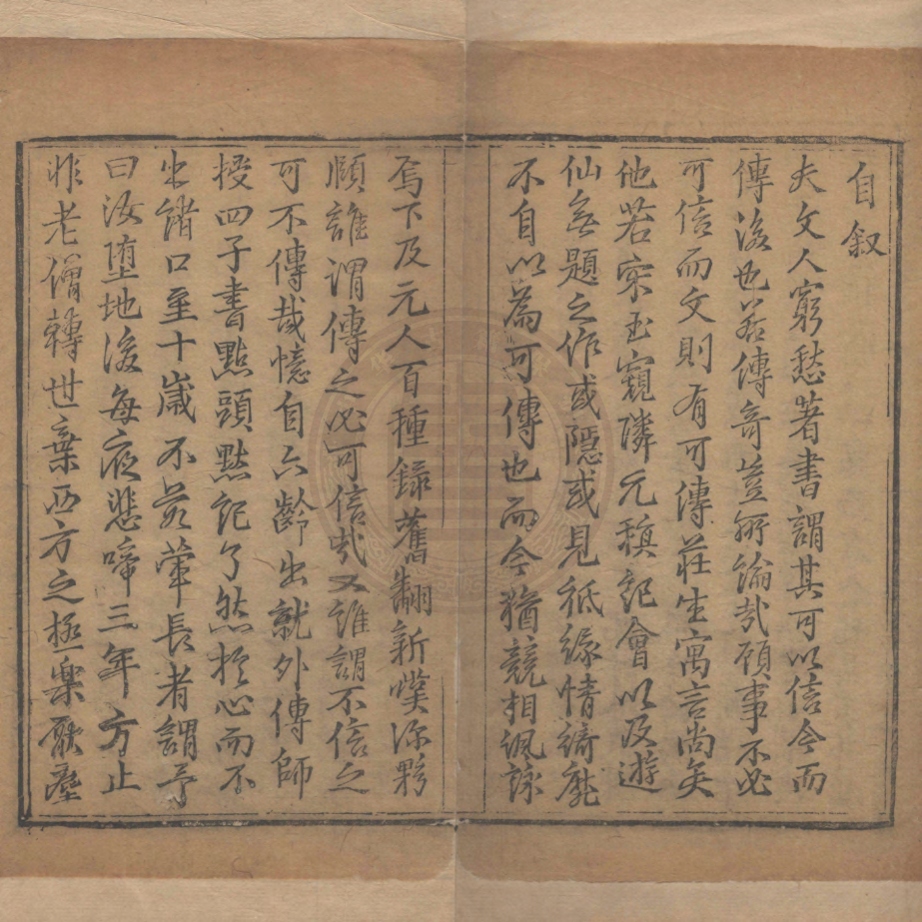 自叙
夫文人窮愁著書謂其可以信今而
傳後也若傳奇豈所論哉顧事不必
可信而文則有可傳莊生寓言尚矣
他若宋玉窺隣元稹記會以及遊
仙無題之作或隱或見祇緣情綺靡
不自以為可傳也而今猶競相諷詠
焉下及元人百種録舊翻新嘆添夥
頥誰謂傳之必可信哉又誰謂不信之
可不傳哉憶自六齡出就外傳師
授四子書點頭黙記了然於心而不
出諸口至十歲不茹葷長者謂予
曰汝堕地後每夜悲啼三年方止
非老僧轉世棄西方之極樂厭塵